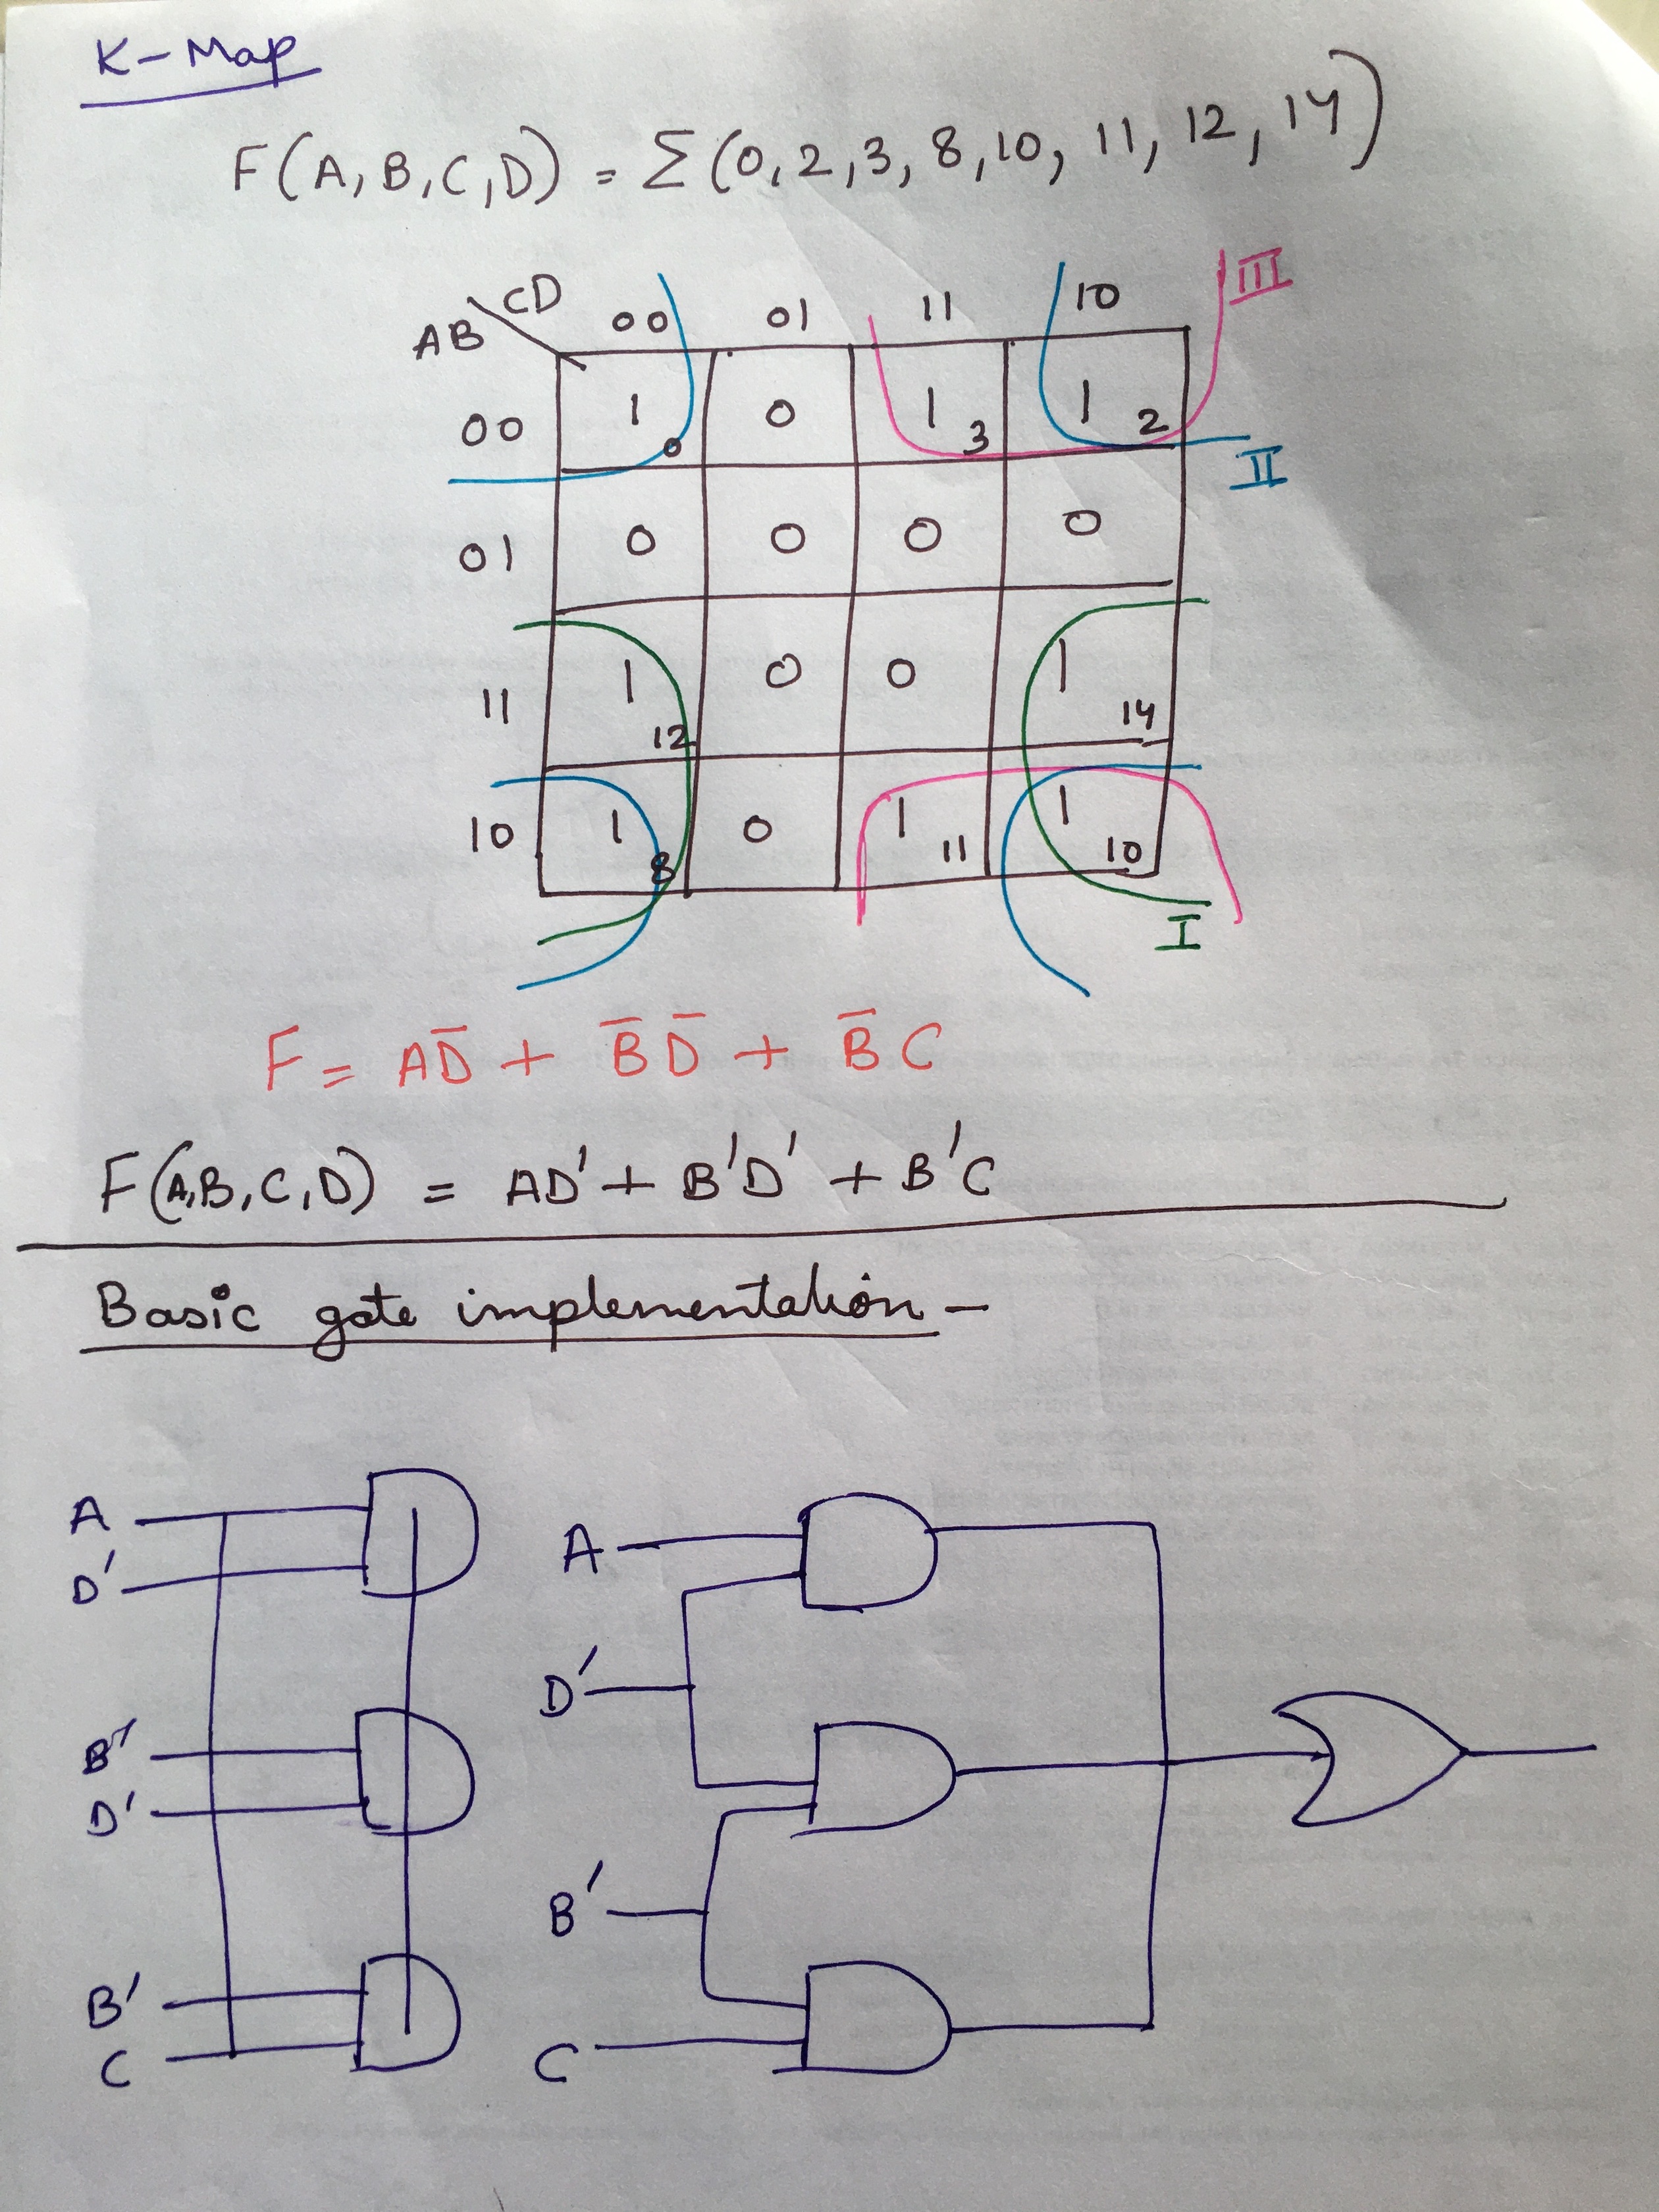 K-Map
F(A,B,C,D) = Σ(0,2,3,8,10,11,12,14)
CD
AB
00 01 11 10
III
00 1 0 0 1 3 1 2
II
01 0 0 0 0
11 1 12 0 0 1 14
10 1 8 0 1 11 1 10
I
F = AD̅ + B̅D̅ + B̅C
F(A,B,C,D) = AD' + B'D' + B'C
Basic gate implementation -
A
D'
B'
D'
B'
C
A
D'
B'
C